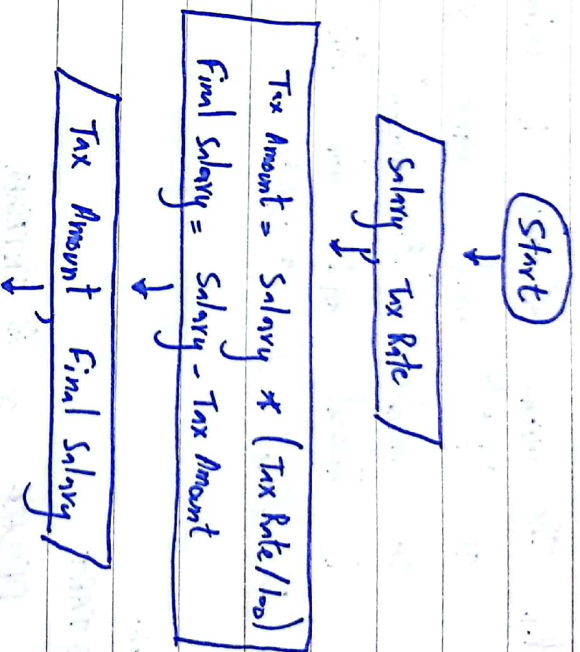 Start
Salary, Tax Rate
Tax Amount = Salary * (Tax Rate/100)
Final Salary = Salary - Tax Amount
Tax Amount, Final Salary